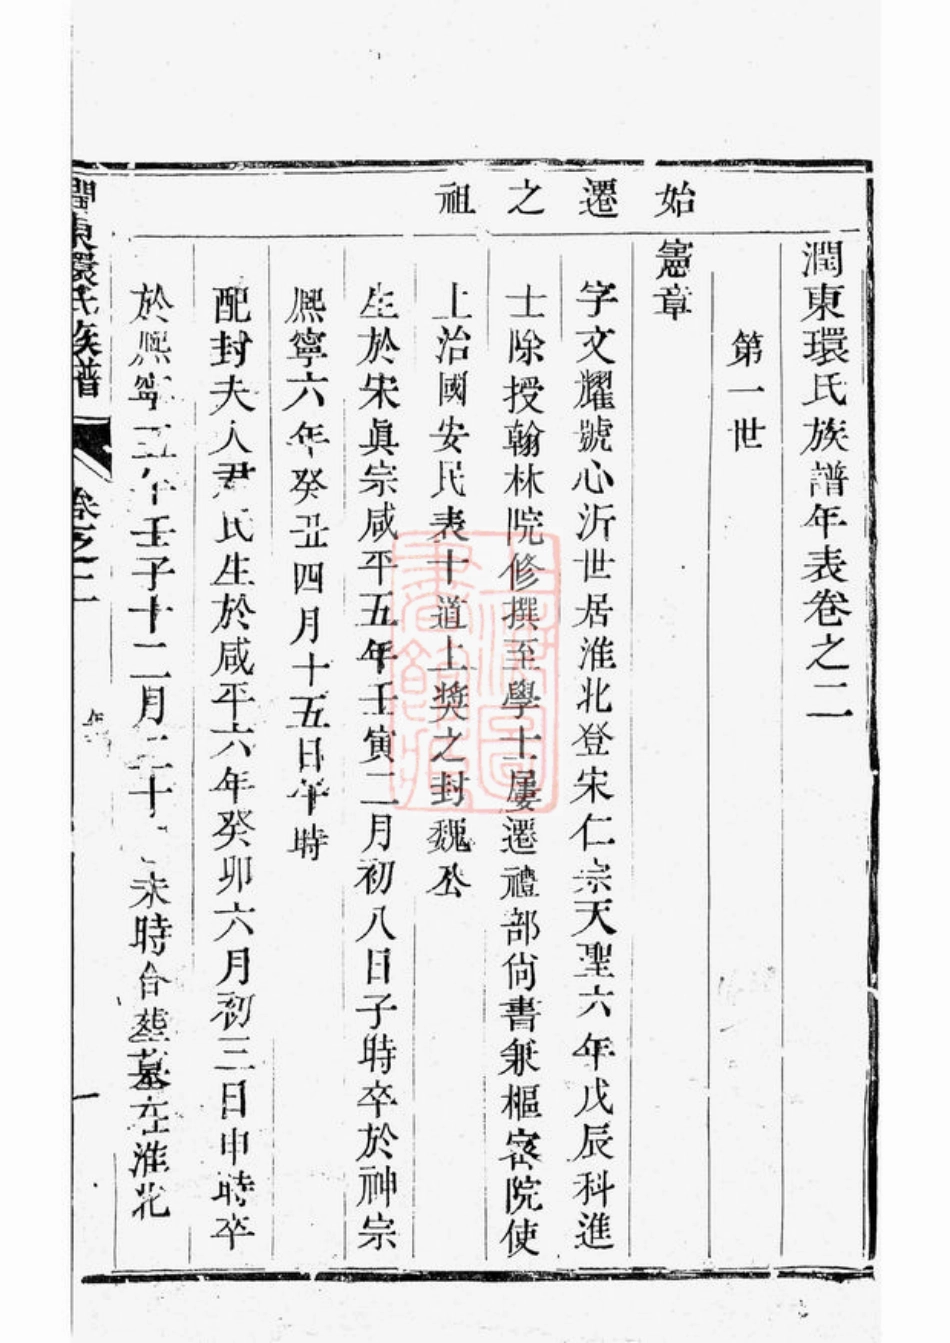 潤東環氏族譜年表卷之二
第一世
始遷之祖
憲章
字文耀號心沂世居淮北登宋仁宗天聖六年戊辰科進
士除授翰林院修撰至學士屢遷禮部尙書兼樞密院使
上治國安民表十道上奬之封魏公
生於宋眞宗咸平五年壬寅二月初八日子時卒於神宗
熙寧六年癸丑四月十五日午時
配封夫人尹氏生於咸平六年癸卯六月初三日申時卒
於熙寧五年壬子十二月二十 未時合葬墓在淮北
潤東環氏族譜
卷之二
一